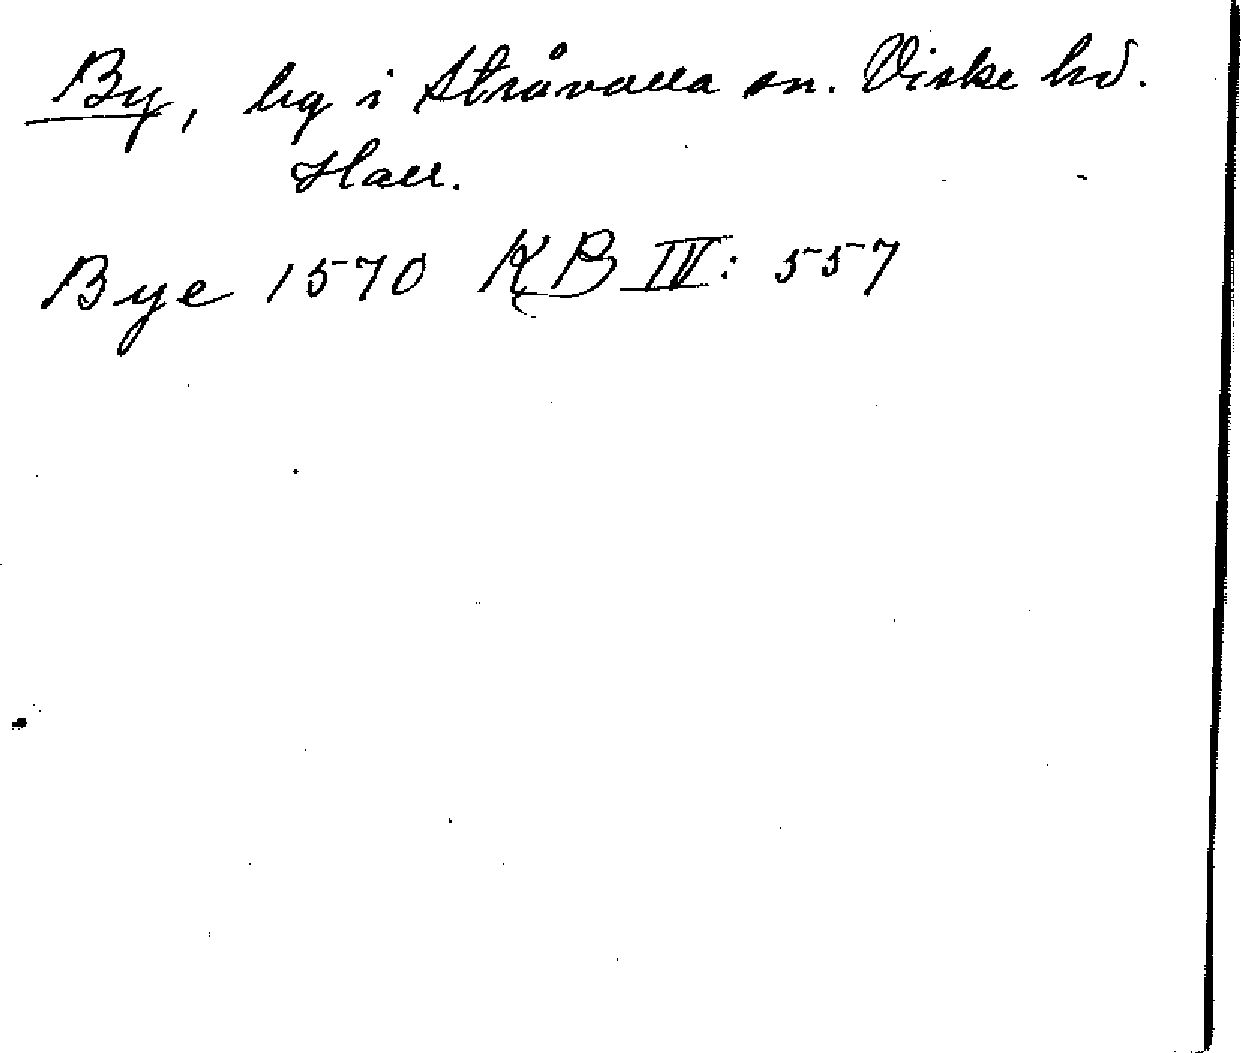 By, bg i Stråvalla sn. Viske hd.
Hall.
Bye 1570 KB IV: 557